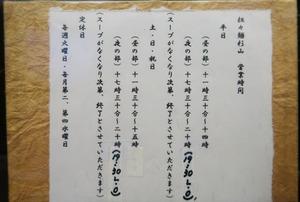 担々麺杉山 営業時間
平日
（昼の部）十一時三十分～十四時
（夜の部）十七時三十分～二十時（19:30 L.O）
（スープがなくなり次第、終了とさせていただきます）
土・日・祝日
（昼の部）十一時三十分～十五時
（夜の部）十七時三十分～二十時（19:30 L.O）
（スープがなくなり次第、終了とさせていただきます）
定休日
毎週火曜日・毎月第二、第四水曜日